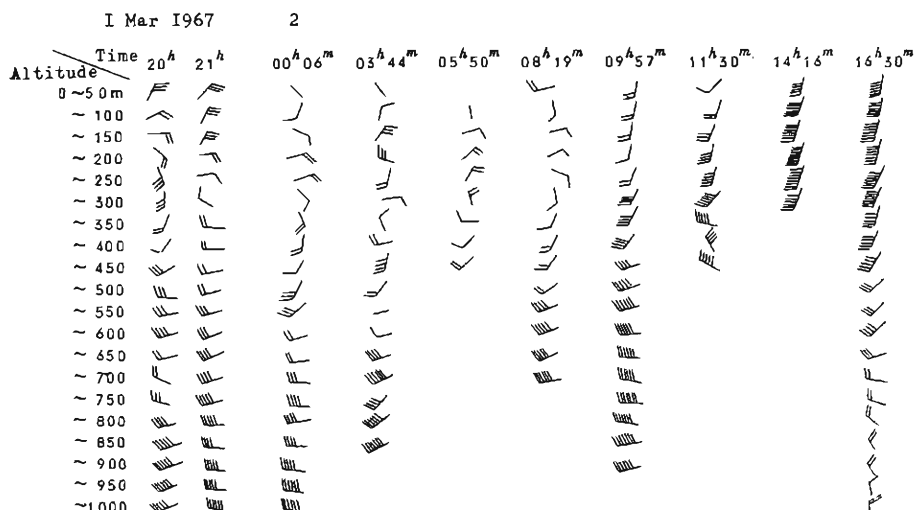 I Mar I967 2
Time 20h 21h 00h06m 03h44m 05h50m 08h19m 09h57m 11h30m 14h16m 16h30m
Altitude
0~50m
~100
~150
~200
~250
~300
~350
~400
~450
~500
~550
~600
~650
~700
~750
~800
~850
~900
~950
~1000